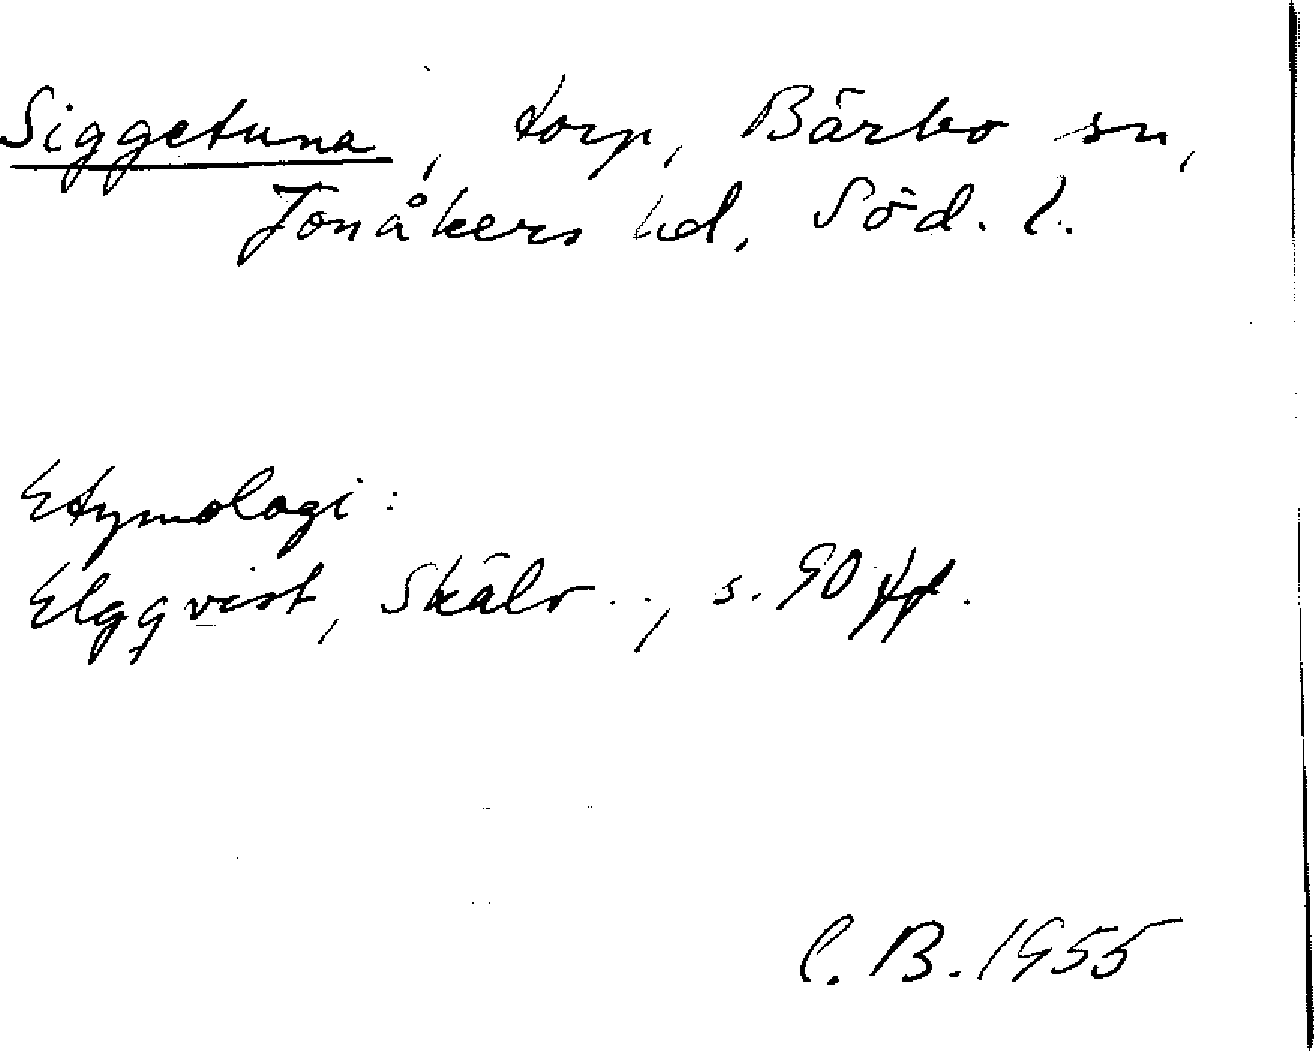 Siggetuna, torp, Bärbo sn,
Jonåkers hd, Söd. l.
Etymologi:
Elgqvist, Skälv.., s. 90 ff.
C. B. 1955